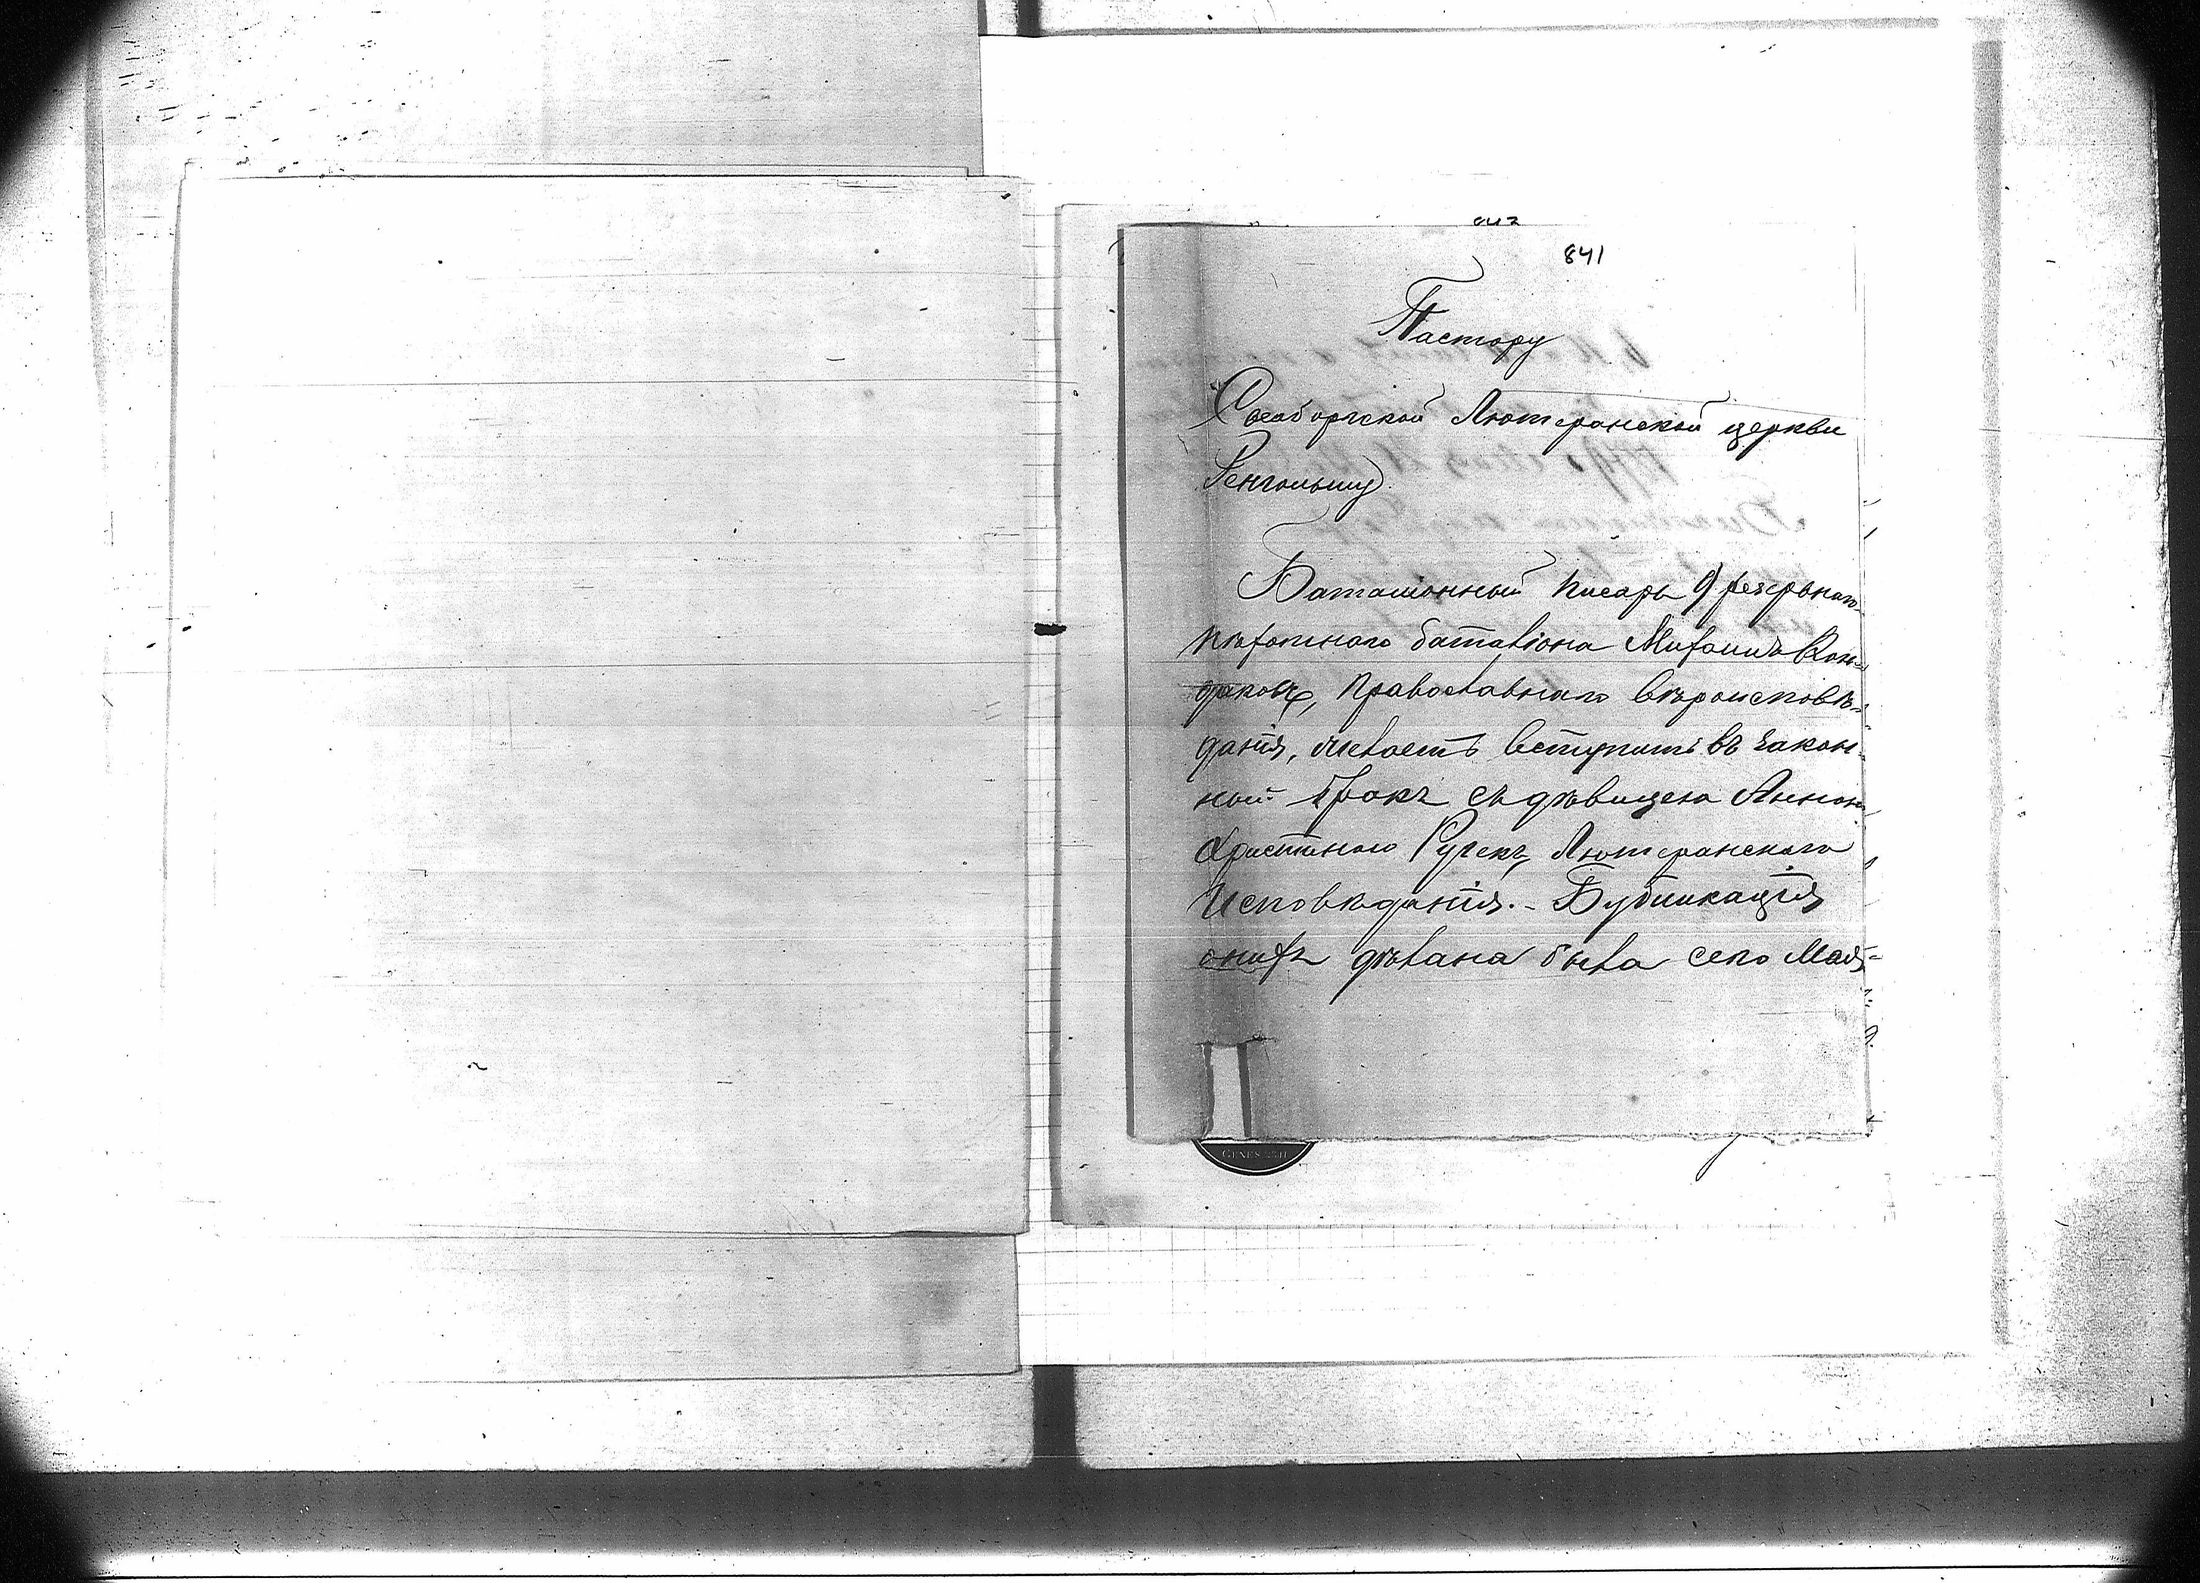 841
Пастору
Свеаборгской Лютеранской церкви
Ренгольму
Баталіонный писарь 9 резервнаго
пѣхотнаго баталіона Михаилъ Кон-
драковъ, православнаго вѣроисповѣ-
данія, желаетъ вступить въ закон-
ный бракъ съ дѣвицею Анною
Христиною Лютеранскаго
Исповѣданія. - Бубликація
онихъ дѣлана была сего Мая-
GENOS